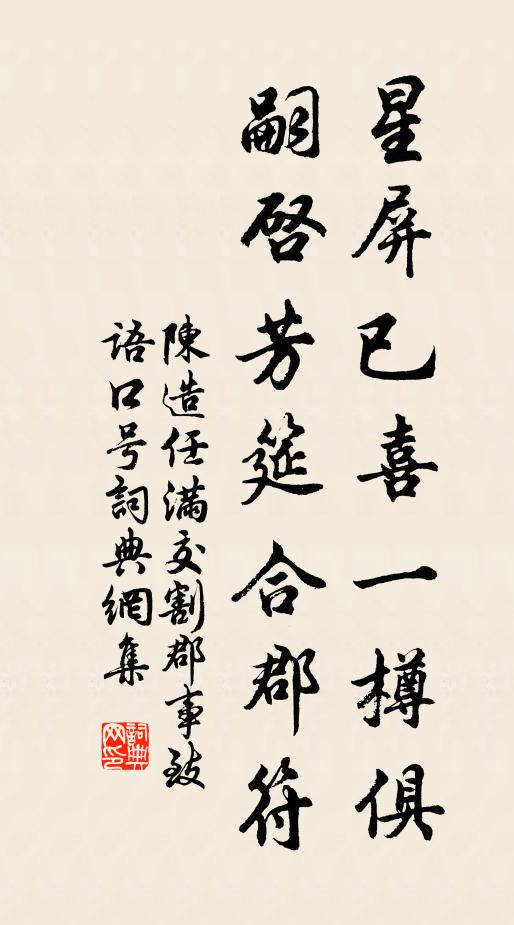 星屏已喜一樽俱
嗣啓芳筵合郡符
陳造任滿交割郡事致
語口号詞典網集
詞典网印